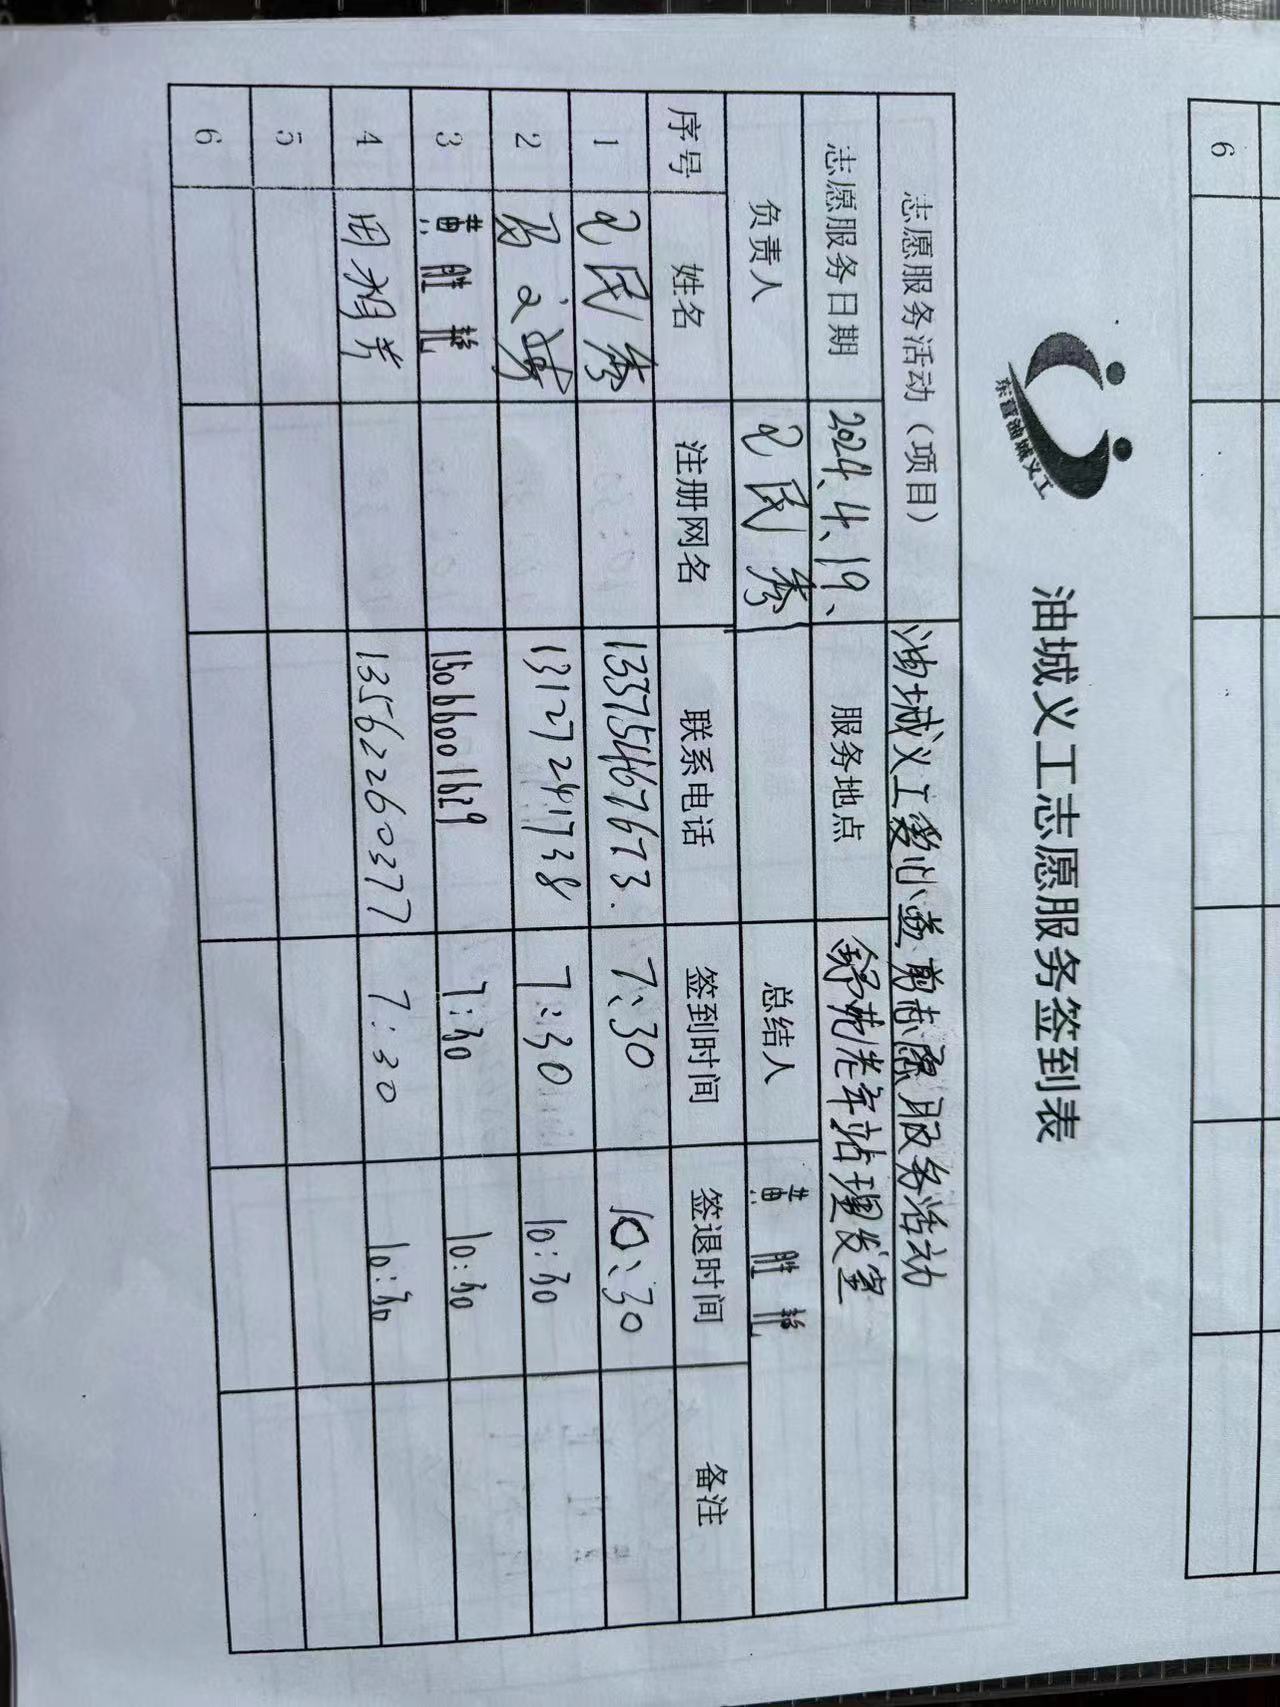 6
东营油城义工
油城义工志愿服务签到表
志愿服务活动（项目） 油城义工爱心益剪志愿服务活动
志愿服务日期 2024.4.19、 服务地点 锦苑老年站理发室
负责人 民秀 总结人 黄胜艳
序号 姓名 注册网名 联系电话 签到时间 签退时间 备注
1 民秀 13375467673. 7:30 10:30
2 13127241738 7:30 10:30
3 黄胜艳 15066001629 7:30 10:30
4 13562260377 7:30 10:30
5
6